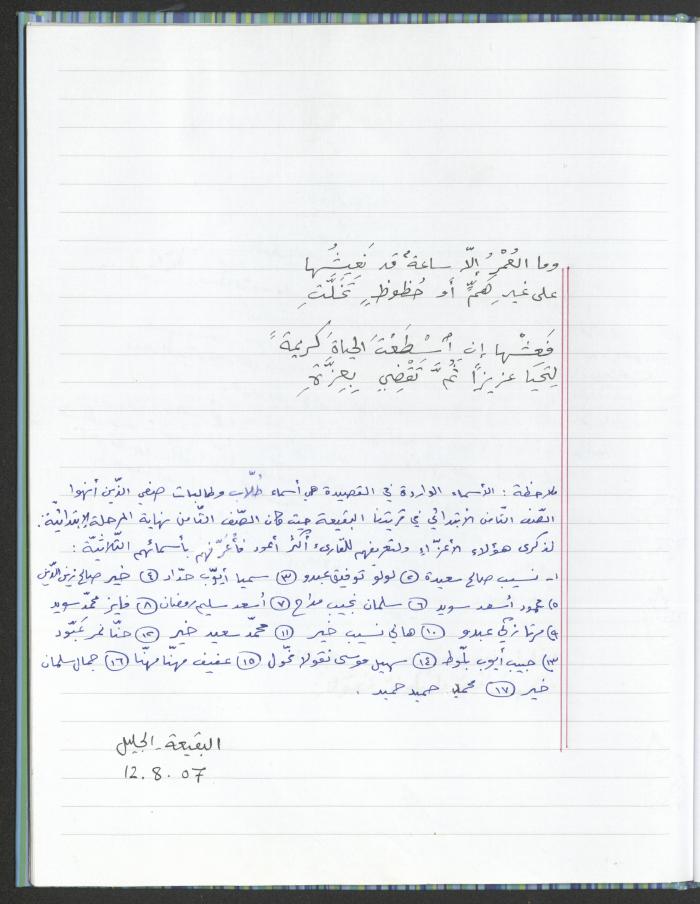 وما العُمْرُ إلّا ساعةٌ قد نَعِيشُها
على غيرِ هَمٍّ أو حُظوظٍ تَخَلَّتِ
فَعِشْها إنِ ٱسْطَعْتَ الحياةَ كريمةً
لِتَحيَا عزيزًا ثُمَّ تَقْضِي بِعِزَّةِ
ملاحظة : الأسماء الواردة في القصيدة هي أسماء طُلّاب وطالبات صفي الذّين أنهوا
الصّف الثّامن الابتدائي في قريتنا البقيعة حيث كان الصّف الثّامن نهاية المرحلة الابتدائيّة .
لذكرى هؤلاء الأعزّاء ولتعريفهم للقارىء أكثر أعود فأُعرِّفهم بأسمائهم الثّلاثيّة :
١- نسيب صالح سعيدة ٢) لولو توفيق عبدو ٣) سميا أيّوب حدّاد ٤) خير صالح زين الدّين
٥) محمود أسعد سويد ٦) سلمان نجيب مداح ٧) أسعد سليم رمضان ٨) فايز محمّد سويد
٩) مرتا زكي عبدو ١٠) هاني نسيب خير ١١) محمّد سعيد خير ١٢) حنّا نمر عَبّود
١٣) حبيب أيوب بلّوط ١٤) سهيل موسى نقولا مخّول ١٥) عفيف مهنّا مهنّا ١٦) جمال سلمان
خير ١٧) محمد حميد حميد .
البقيعة - الجليل
12.8.07